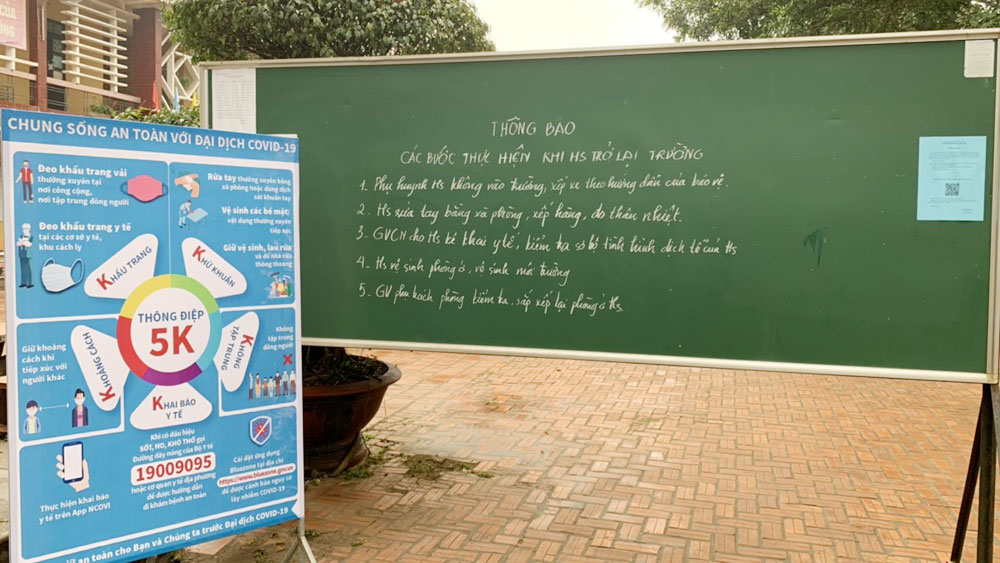 CHUNG SỐNG AN TOÀN VỚI ĐẠI DỊCH COVID-19
Đeo khẩu trang vải
thường xuyên tại
nơi công cộng,
nơi tập trung đông người
Đeo khẩu trang y tế
tại các cơ sở y tế,
khu cách ly
Rửa tay thường xuyên bằng
xà phòng hoặc dung dịch
sát khuẩn tay
Vệ sinh các bề mặt;
vật dụng thường xuyên
tiếp xúc
Giữ vệ sinh, lau rửa
và để nhà cửa
thông thoáng
KHẨU TRANG
KHỬ KHUẨN
THÔNG ĐIỆP
5K
KHOẢNG CÁCH
KHÔNG
TẬP TRUNG
KHAI BÁO
Y TẾ
Giữ khoảng
cách khi
tiếp xúc với
người khác
Không
tập trung
đông người
Khi có dấu hiệu
SỐT, HO, KHÓ THỞ gọi
Đường dây nóng của Bộ Y tế
19009095
hoặc cơ quan y tế địa phương
để được hướng dẫn
đi khám bệnh an toàn
Thực hiện khai báo
y tế trên App NCOVI
Cài đặt ứng dụng
Bluezone tại địa chỉ
https://www.bluezone.gov.vn
để được cảnh báo nguy cơ
lây nhiễm COVID-19
an toàn cho Bạn và Chúng ta trước Đại dịch COVID-19
THÔNG BÁO
CÁC BƯỚC THỰC HIỆN KHI HS TRỞ LẠI TRƯỜNG
1. Phụ huynh HS không vào trường, xếp xe theo hướng dẫn của bảo vệ.
2. Hs rửa tay bằng xà phòng, xếp hàng, đo thân nhiệt.
3. GVCN cho Hs kê khai y tế, kiểm tra sơ bộ tình hình dịch tễ của Hs
4. Hs vệ sinh phòng ở, vệ sinh môi trường
5. GV phụ trách phòng kiểm tra, sắp xếp lại phòng ở Hs.